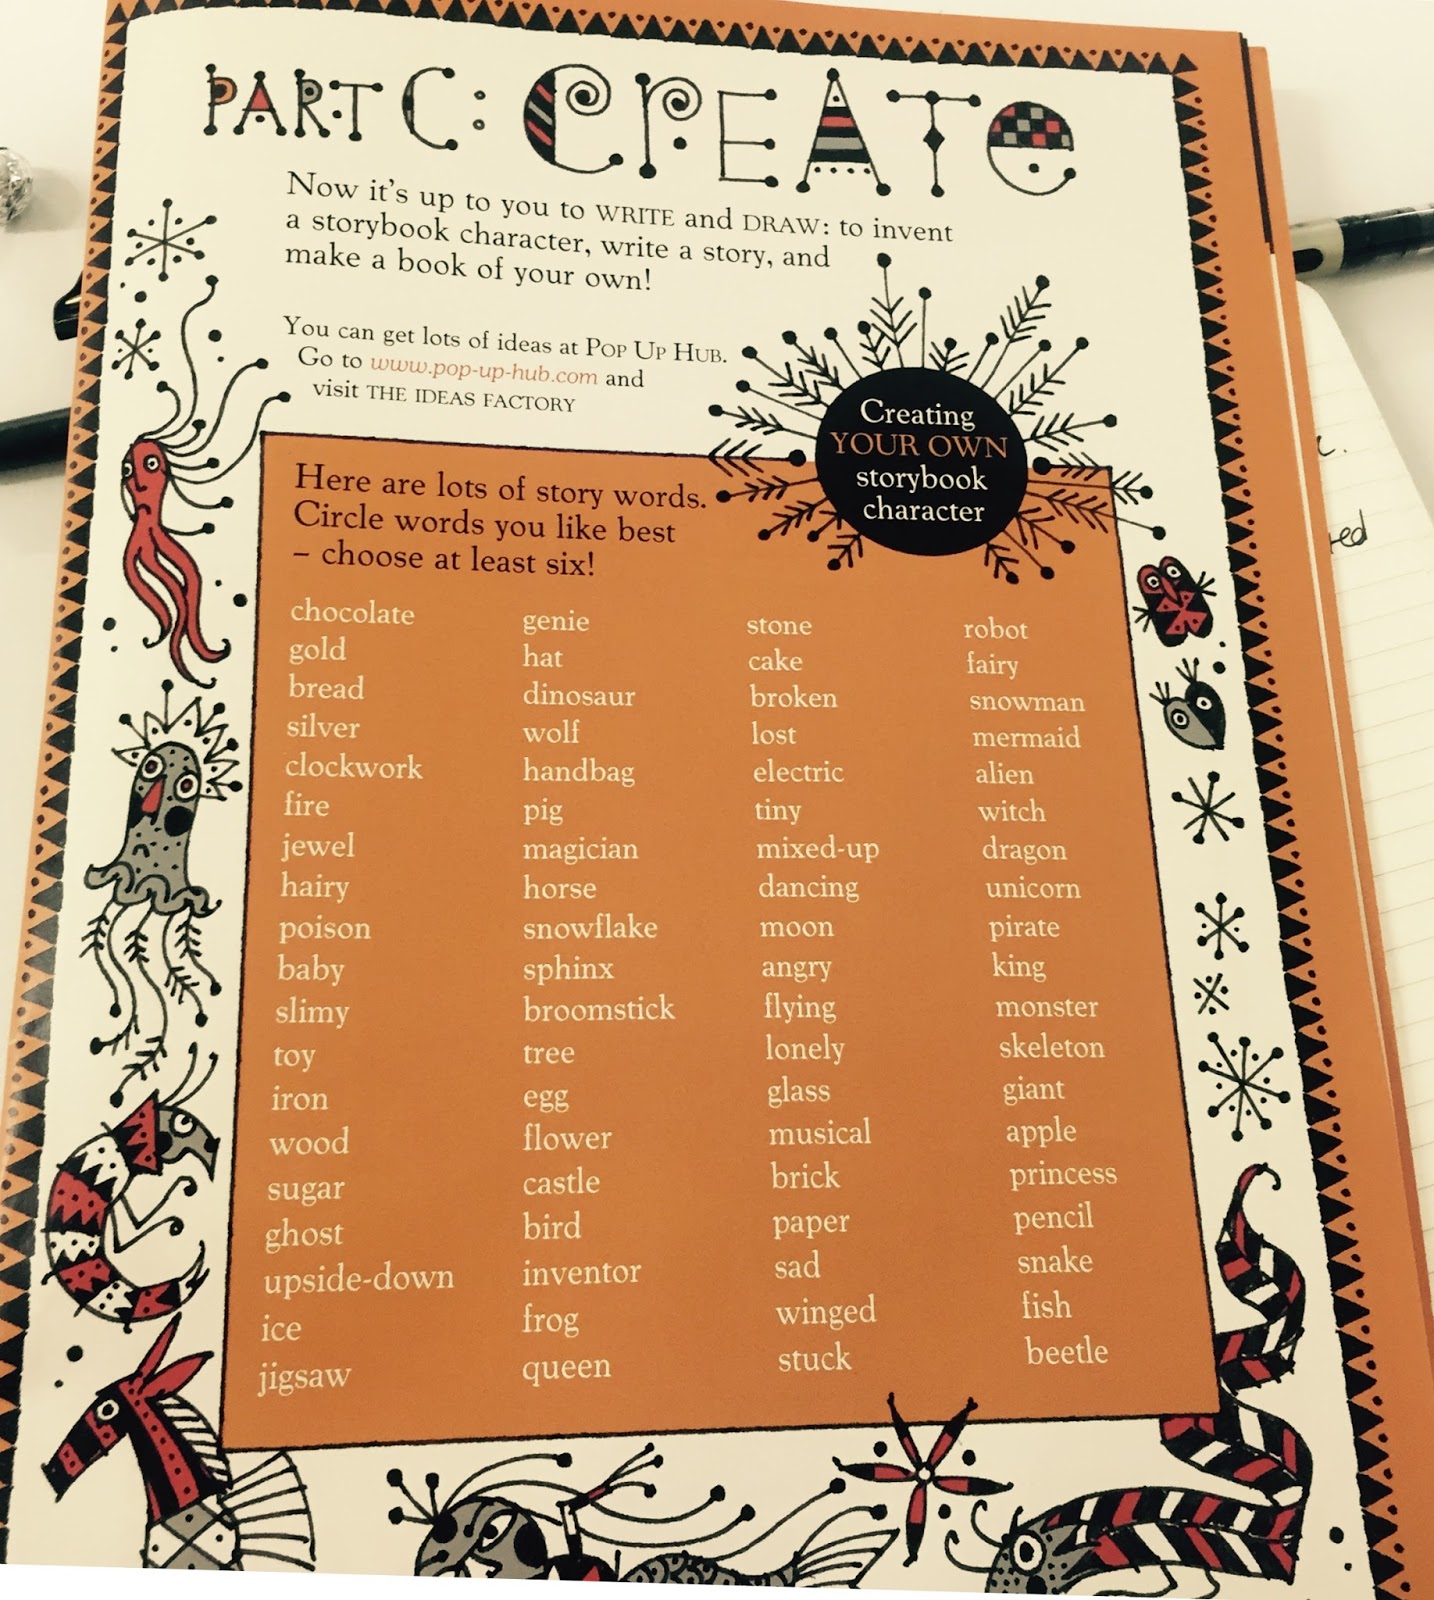 PART C: CREATE
Now it's up to you to WRITE and DRAW: to invent
a storybook character, write a story, and
make a book of your own!
You can get lots of ideas at POP UP HUB.
Go to www.pop-up-hub.com and
visit THE IDEAS FACTORY
Creating
YOUR OWN
storybook
character
Here are lots of story words.
Circle words you like best
– choose at least six!
chocolate
gold
bread
silver
clockwork
fire
jewel
hairy
poison
baby
slimy
toy
iron
wood
sugar
ghost
upside-down
ice
jigsaw
genie
hat
dinosaur
wolf
handbag
pig
magician
horse
snowflake
sphinx
broomstick
tree
egg
flower
castle
bird
inventor
frog
queen
stone
cake
broken
lost
electric
tiny
mixed-up
dancing
moon
angry
flying
lonely
glass
musical
brick
paper
sad
winged
stuck
robot
fairy
snowman
mermaid
alien
witch
dragon
unicorn
pirate
king
monster
skeleton
giant
apple
princess
pencil
snake
fish
beetle